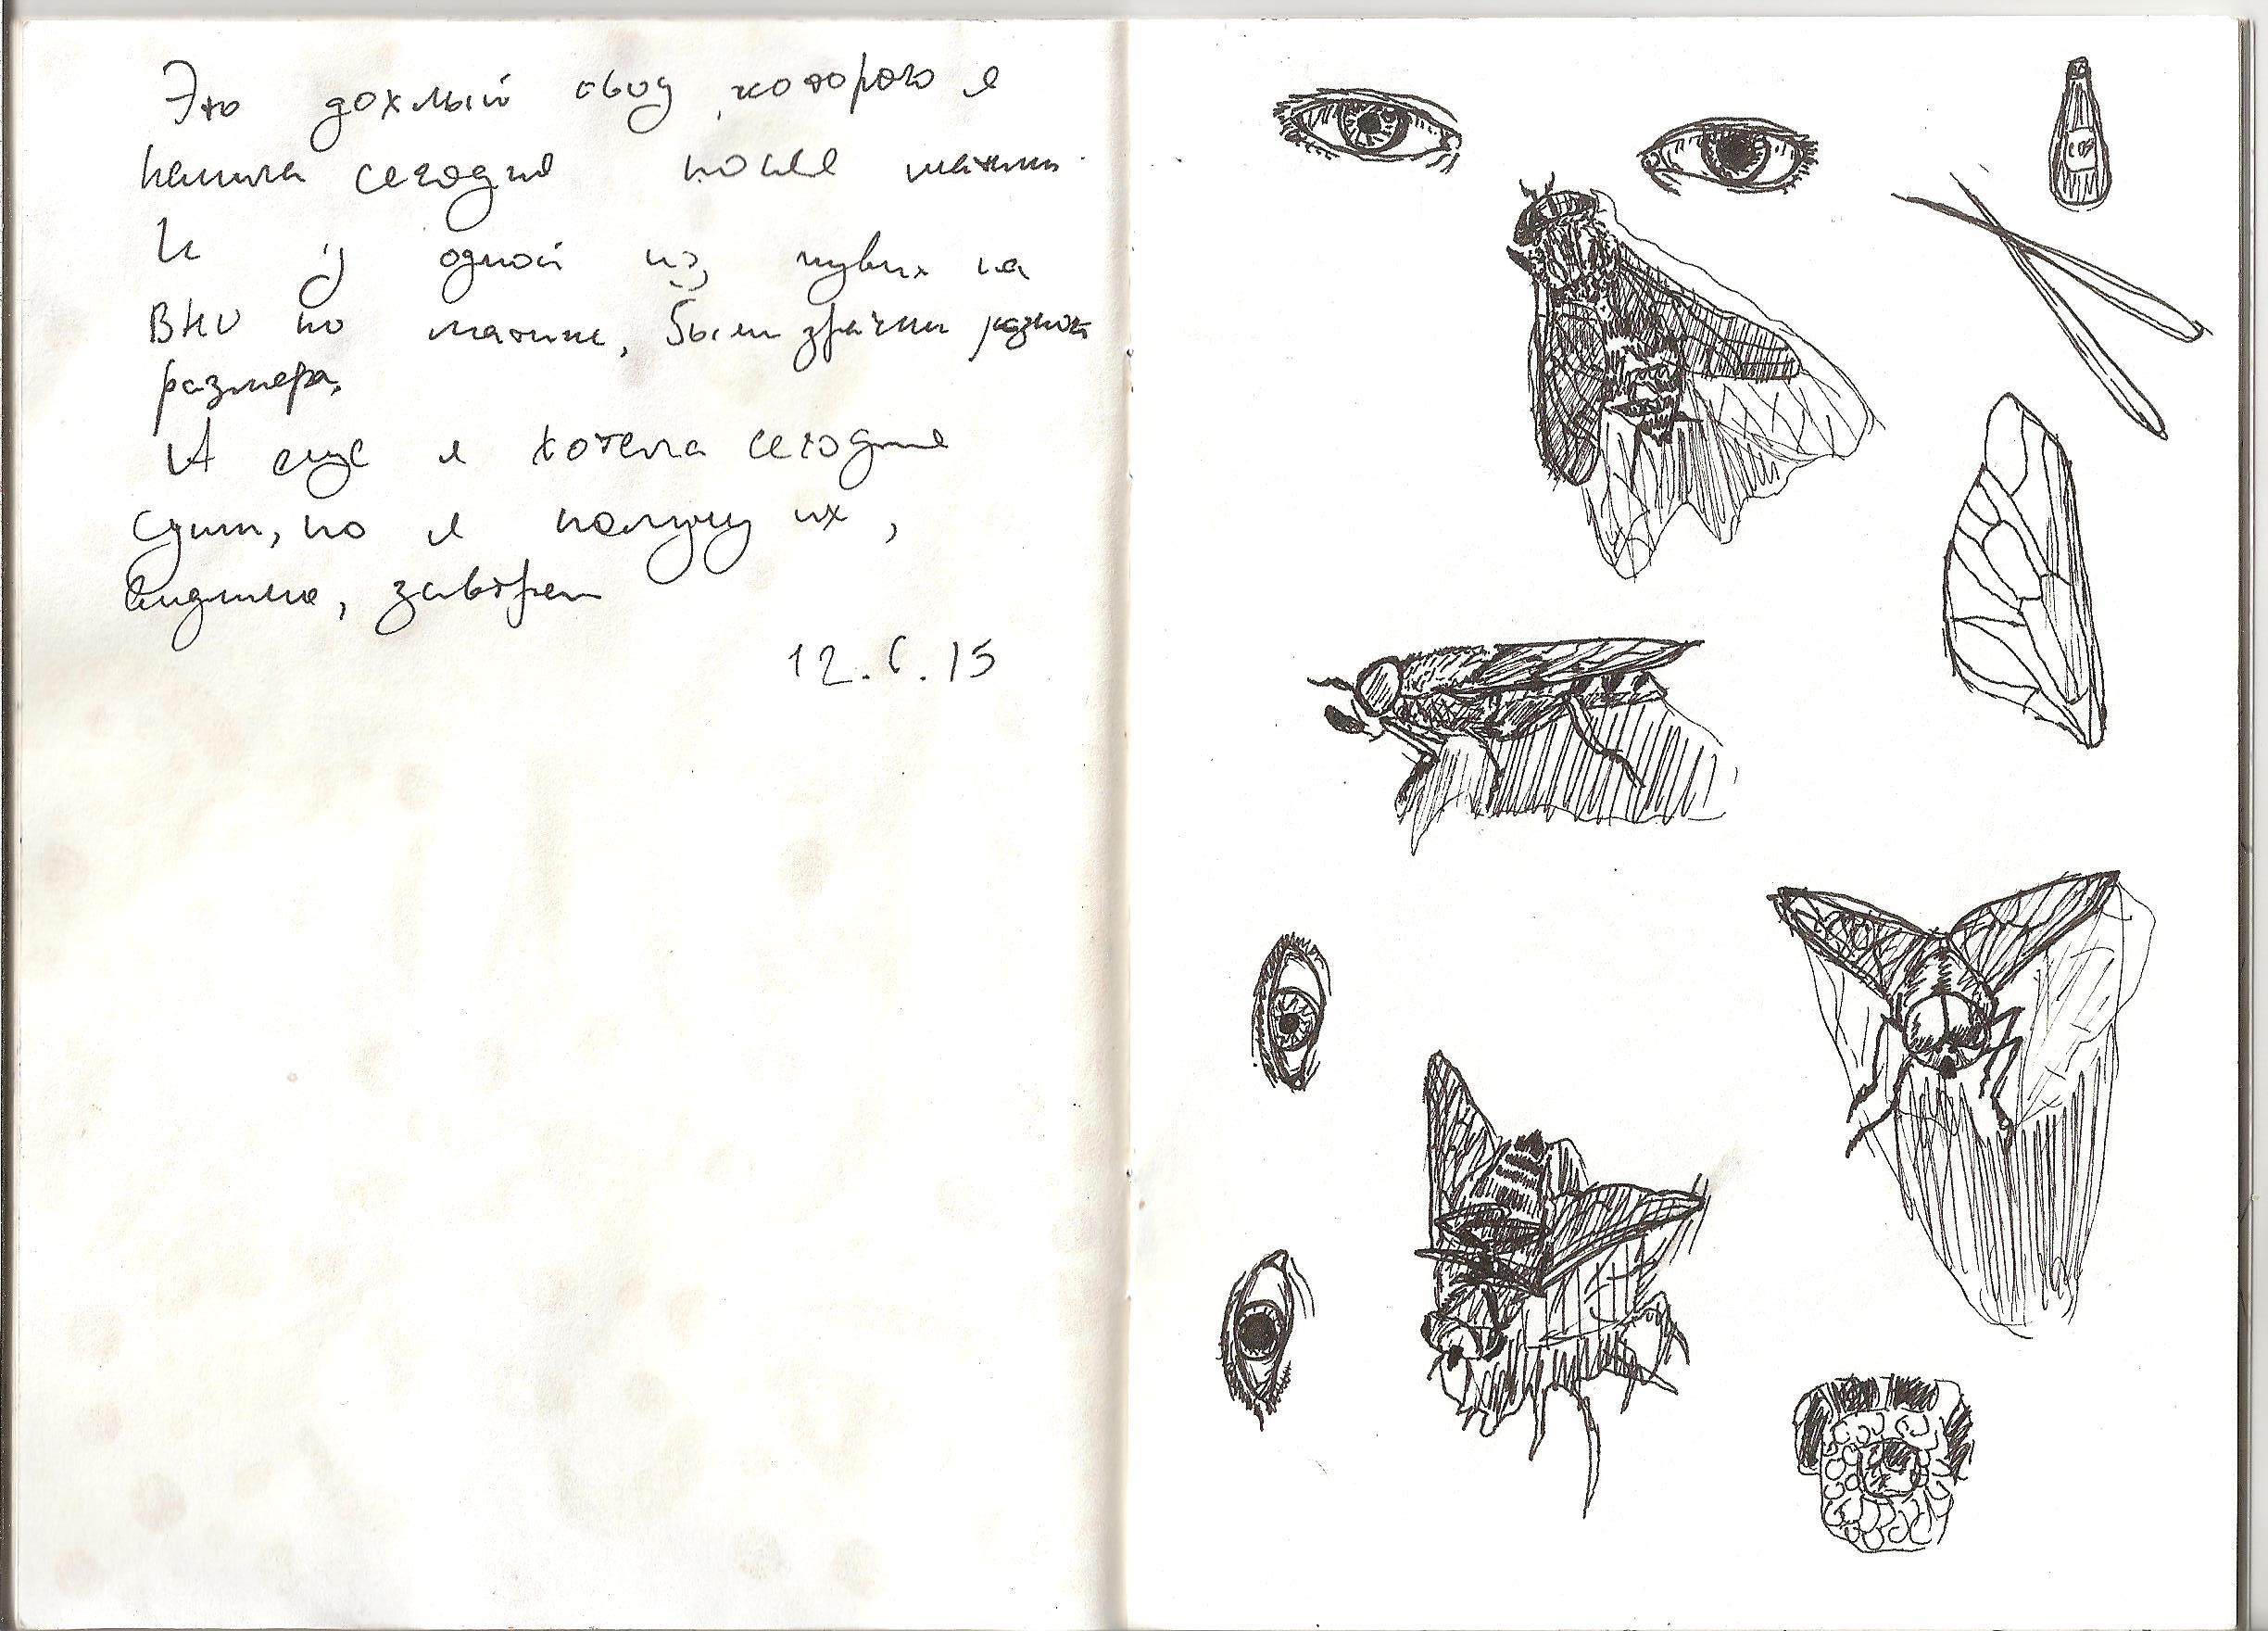 Это дохлый овод, которого я
нашла сегодня после
И у одной из на
ВНО по были зрачки разного
размера.
А еще я хотела сегодня
но я получу их,
видимо, завтра
12.6.15